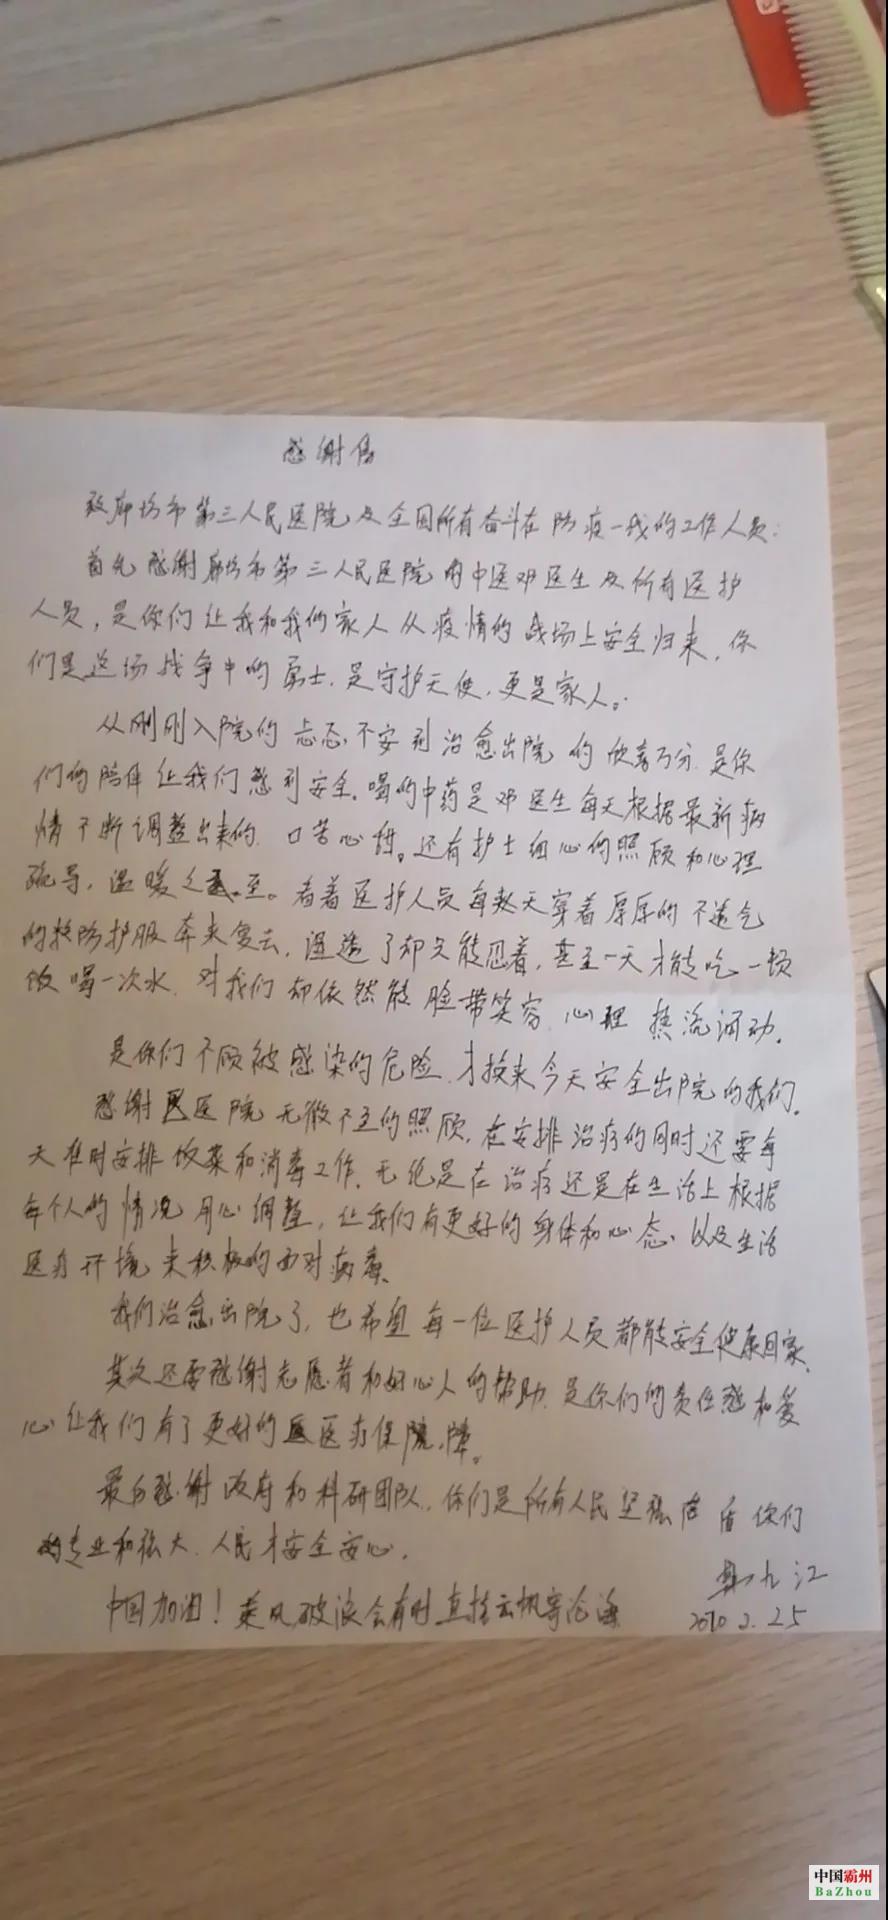 感谢信
致廊坊市第三人民医院及全国所有奋斗在防疫一线的工作人员:
首先感谢廊坊市第三人民医院的中医邓医生及所有医护
人员,是你们让我和我的家人从疫情的战场上安全归来,你
们是这场战争中的勇士,是守护天使,更是家人。
从刚刚入院的忐忑、不安到治愈出院的欣喜万分,是你
们的陪伴让我们感到安全。喝的中药是邓医生每天根据最新病
情不断调整出来的,口苦心甜。还有护士细心的照顾和心理
疏导,温暖之至。看着医护人员每天穿着厚厚的不透气
的防护服奔来复去,湿透了却只能忍着,甚至一天才能吃一顿
饭喝一次水,对我们却依然能脸带笑容,心理热流涌动。
是你们不顾被感染的危险,才换来今天安全出院的我们。
感谢医院无微不至的照顾,在安排治病的同时还要每
天准时安排饭菜和消毒工作,无论是在治病还是在生活上根据
每个人的情况用心调整,让我们有更好的身体和心态、以及生活
医疗环境来积极的面对病毒。
我们治愈出院了,也希望每一位医护人员都能安全健康回家。
其次还要感谢志愿者和好心人的帮助,是你们的责任感和爱
心让我们有了更好的医疗保障。
最后感谢政府和科研团队,你们是所有人民坚强后盾你们
的专业和强大,人民才安全安心。
中国加油!乘风破浪会有时直挂云帆寄沧海
九江
2020.2.25
中国霸州
BaZhou